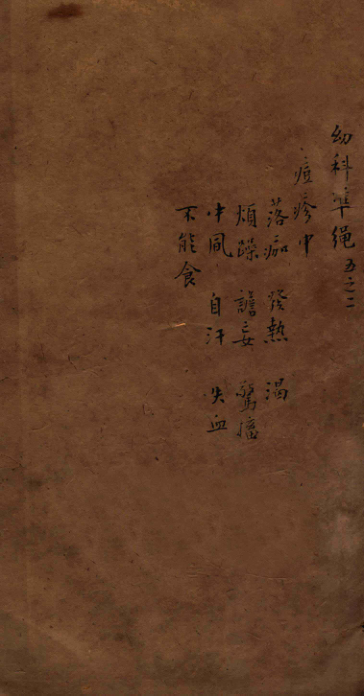 幼科準繩五之二
痘疹中
落痂 發熱 渴
煩躁 譫妄 驚搐
中風 自汗 失血
不能食